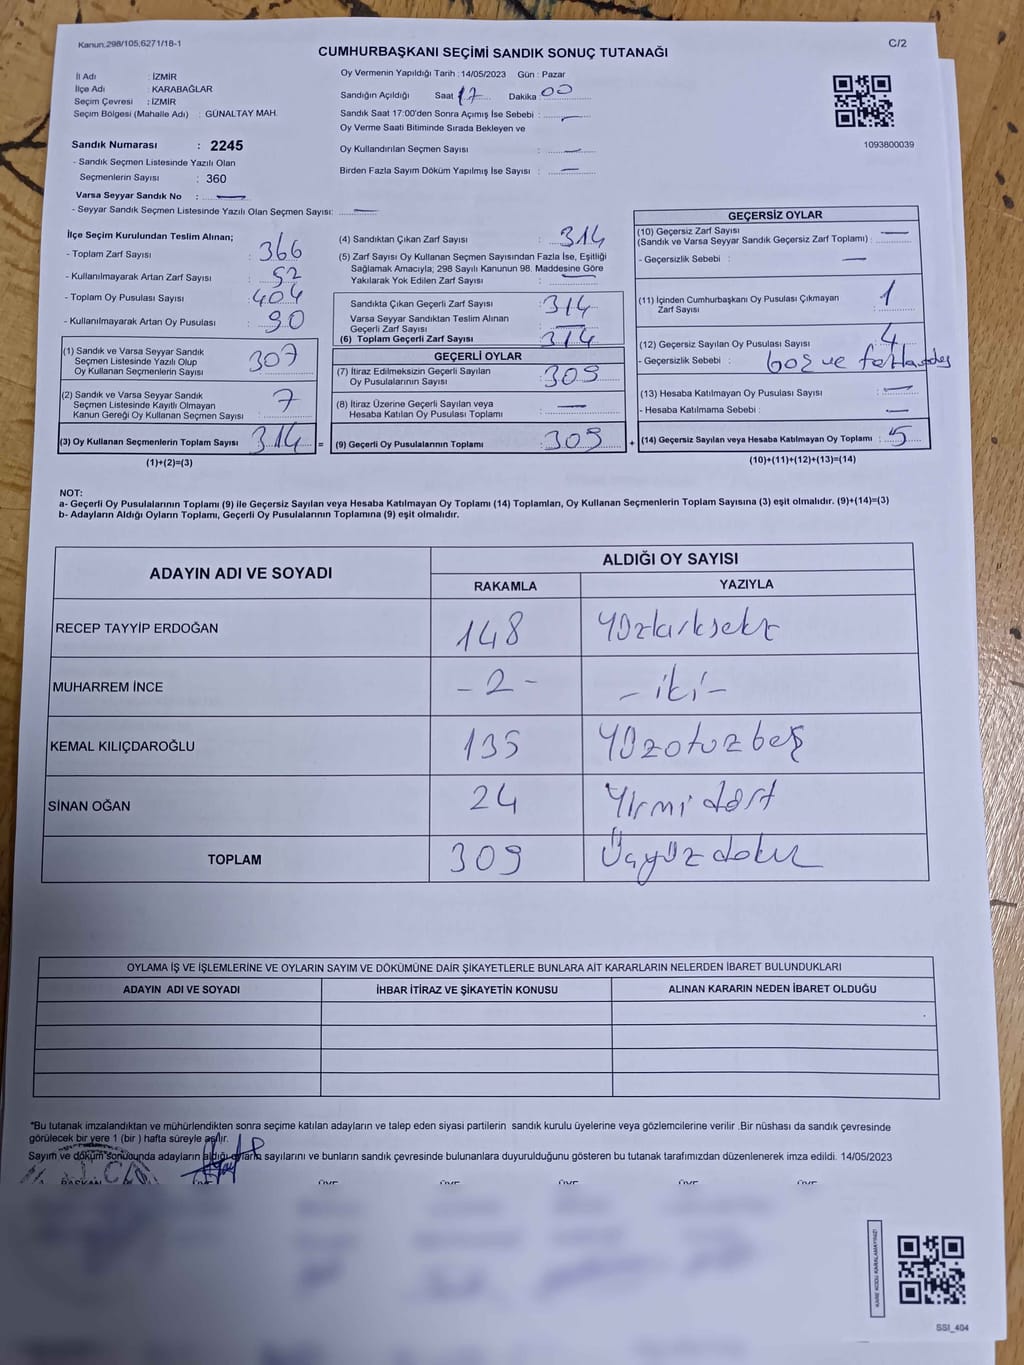 Kanun:298/105;6271/18-1
C/2
CUMHURBAŞKANI SEÇİMİ SANDIK SONUÇ TUTANAĞI
İl Adı : İZMİR
İlçe Adı : KARABAĞLAR
Seçim Çevresi : İZMİR
Seçim Bölgesi (Mahalle Adı) : GÜNALTAY MAH.
Sandık Numarası : 2245
- Sandık Seçmen Listesinde Yazılı Olan
Seçmenlerin Sayısı : 360
Varsa Seyyar Sandık No : —
- Seyyar Sandık Seçmen Listesinde Yazılı Olan Seçmen Sayısı: —
Oy Vermenin Yapıldığı Tarih : 14/05/2023 Gün : Pazar
Sandığın Açıldığı Saat 17 Dakika 00
Sandık Saat 17:00'den Sonra Açımış İse Sebebi : —
Oy Verme Saati Bitiminde Sırada Bekleyen ve
Oy Kullandırılan Seçmen Sayısı : —
Birden Fazla Sayım Döküm Yapılmış İse Sayısı : —
1093800039
İlçe Seçim Kurulundan Teslim Alınan;
- Toplam Zarf Sayısı : 366
- Kullanılmayarak Artan Zarf Sayısı : 52
- Toplam Oy Pusulası Sayısı : 404
- Kullanılmayarak Artan Oy Pusulası : 90
(1) Sandık ve Varsa Seyyar Sandık
Seçmen Listesinde Yazılı Olup
Oy Kullanan Seçmenlerin Sayısı : 307
(2) Sandık ve Varsa Seyyar Sandık
Seçmen Listesinde Kayıtlı Olmayan
Kanun Gereği Oy Kullanan Seçmen Sayısı : 7
(3) Oy Kullanan Seçmenlerin Toplam Sayısı : 314 =
(1)+(2)=(3)
(4) Sandıktan Çıkan Zarf Sayısı : 314
(5) Zarf Sayısı Oy Kullanan Seçmen Sayısından Fazla İse, Eşitliği
Sağlamak Amacıyla; 298 Sayılı Kanunun 98. Maddesine Göre
Yakılarak Yok Edilen Zarf Sayısı : —
Sandıkta Çıkan Geçerli Zarf Sayısı : 314
Varsa Seyyar Sandıktan Teslim Alınan
Geçerli Zarf Sayısı : —
(6) Toplam Geçerli Zarf Sayısı : 314
GEÇERLİ OYLAR
(7) İtiraz Edilmeksizin Geçerli Sayılan
Oy Pusulalarının Sayısı : 309
(8) İtiraz Üzerine Geçerli Sayılan veya
Hesaba Katılan Oy Pusulası Toplamı : —
(9) Geçerli Oy Pusulalarının Toplamı : 309 +
GEÇERSİZ OYLAR
(10) Geçersiz Zarf Sayısı
(Sandık ve Varsa Seyyar Sandık Geçersiz Zarf Toplamı) : —
- Geçersizlik Sebebi : —
(11) İçinden Cumhurbaşkanı Oy Pusulası Çıkmayan
Zarf Sayısı : 1
(12) Geçersiz Sayılan Oy Pusulası Sayısı : 4
- Geçersizlik Sebebi : boş ve
(13) Hesaba Katılmayan Oy Pusulası Sayısı : —
- Hesaba Katılmama Sebebi : —
(14) Geçersiz Sayılan veya Hesaba Katılmayan Oy Toplamı : 5
(10)+(11)+(12)+(13)=(14)
NOT:
a- Geçerli Oy Pusulalarının Toplamı (9) ile Geçersiz Sayılan veya Hesaba Katılmayan Oy Toplamı (14) Toplamları, Oy Kullanan Seçmenlerin Toplam Sayısına (3) eşit olmalıdır. (9)+(14)=(3)
b- Adayların Aldığı Oyların Toplamı, Geçerli Oy Pusulalarının Toplamına (9) eşit olmalıdır.
ADAYIN ADI VE SOYADI
ALDIĞI OY SAYISI
RAKAMLA YAZIYLA
RECEP TAYYİP ERDOĞAN 148 Yüzkırksekiz
MUHARREM İNCE - 2 - - iki -
KEMAL KILIÇDAROĞLU 135 Yüzotuzbeş
SİNAN OĞAN 24 Yirmidört
TOPLAM 309 Üçyüzdokuz
OYLAMA İŞ VE İŞLEMLERİNE VE OYLARIN SAYIM VE DÖKÜMÜNE DAİR ŞİKAYETLERLE BUNLARA AİT KARARLARIN NELERDEN İBARET BULUNDUKLARI
ADAYIN ADI VE SOYADI İHBAR İTİRAZ VE ŞİKAYETİN KONUSU ALINAN KARARIN NEDEN İBARET OLDUĞU
*Bu tutanak imzalandıktan ve mühürlendikten sonra seçime katılan adayların ve talep eden siyasi partilerin sandık kurulu üyelerine veya gözlemcilerine verilir .Bir nüshası da sandık çevresinde
görülecek bir yere 1 (bir ) hafta süreyle asılır.
Sayım ve döküm sonucunda adayların aldığı oyların sayılarını ve bunların sandık çevresinde bulunanlara duyurulduğunu gösteren bu tutanak tarafımızdan düzenlenerek imza edildi. 14/05/2023
BAŞKAN ÜYE ÜYE ÜYE ÜYE ÜYE ÜYE
KARE KODU KARALAMAYINIZ!
SSI_404